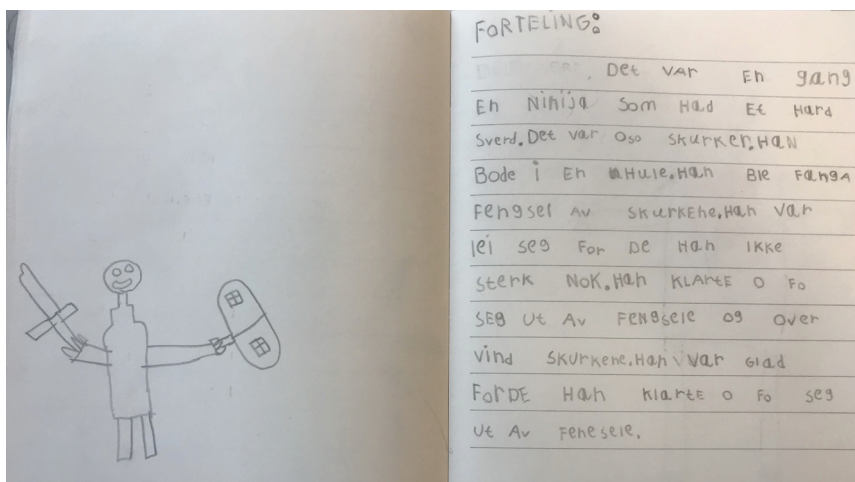 FORTELING:
Det VAr En gang
En Ninija Som Had Et Hard
Sverd. Det var Oso Skurker. HaN
Bode i En Hule. Han Ble FangA
Fengsel Av SkurkEne. Han Var
lei seg For DE Han IKKe
Sterk NoK. Han KLArtE O Fo
SEg Ut Av FENgSele og Over
Vind SKUrKene. Han Var Glad
ForDE Han KlartE O Fo Seg
Ut Av FeneSele.